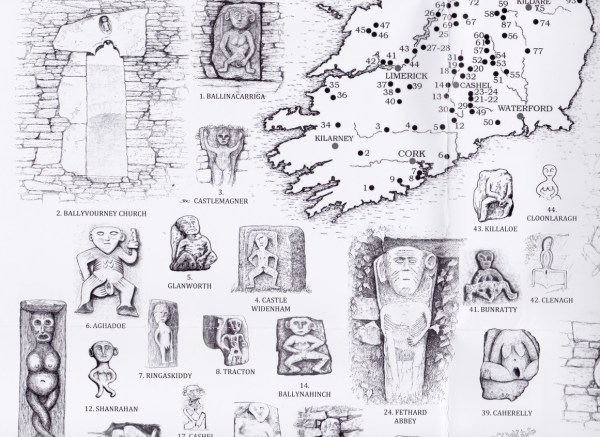 1. BALLINACARRIGA
2. BALLYVOURNEY CHURCH
3.
CASTLEMAGNER
5.
GLANWORTH
4. CASTLE
WIDENHAM
6. AGHADOE
7. RINGASKIDDY
8. TRACTON
14.
BALLYNAHINCH
12. SHANRAHAN
17. CASHEL
24. FETHARD
ABBEY
43. KILLALOE
44.
CLOONLARAGH
41. BUNRATTY
42. CLENAGH
39. CAHERELLY
KILDARE
LIMERICK
CASHEL
WATERFORD
KILARNEY
CORK
64
72
26
66
70
67
69
65
25
58
59
87
75
93
74
47
46
45
43
27-28
44
41
42
60
61
57
52
54
53
77
31
19
18
20
32
51
55
14
13
37
38
39
40
35
36
23-24
21-22
29
49
30
12
50
34
3
4
5
6
2
7
8
9
1